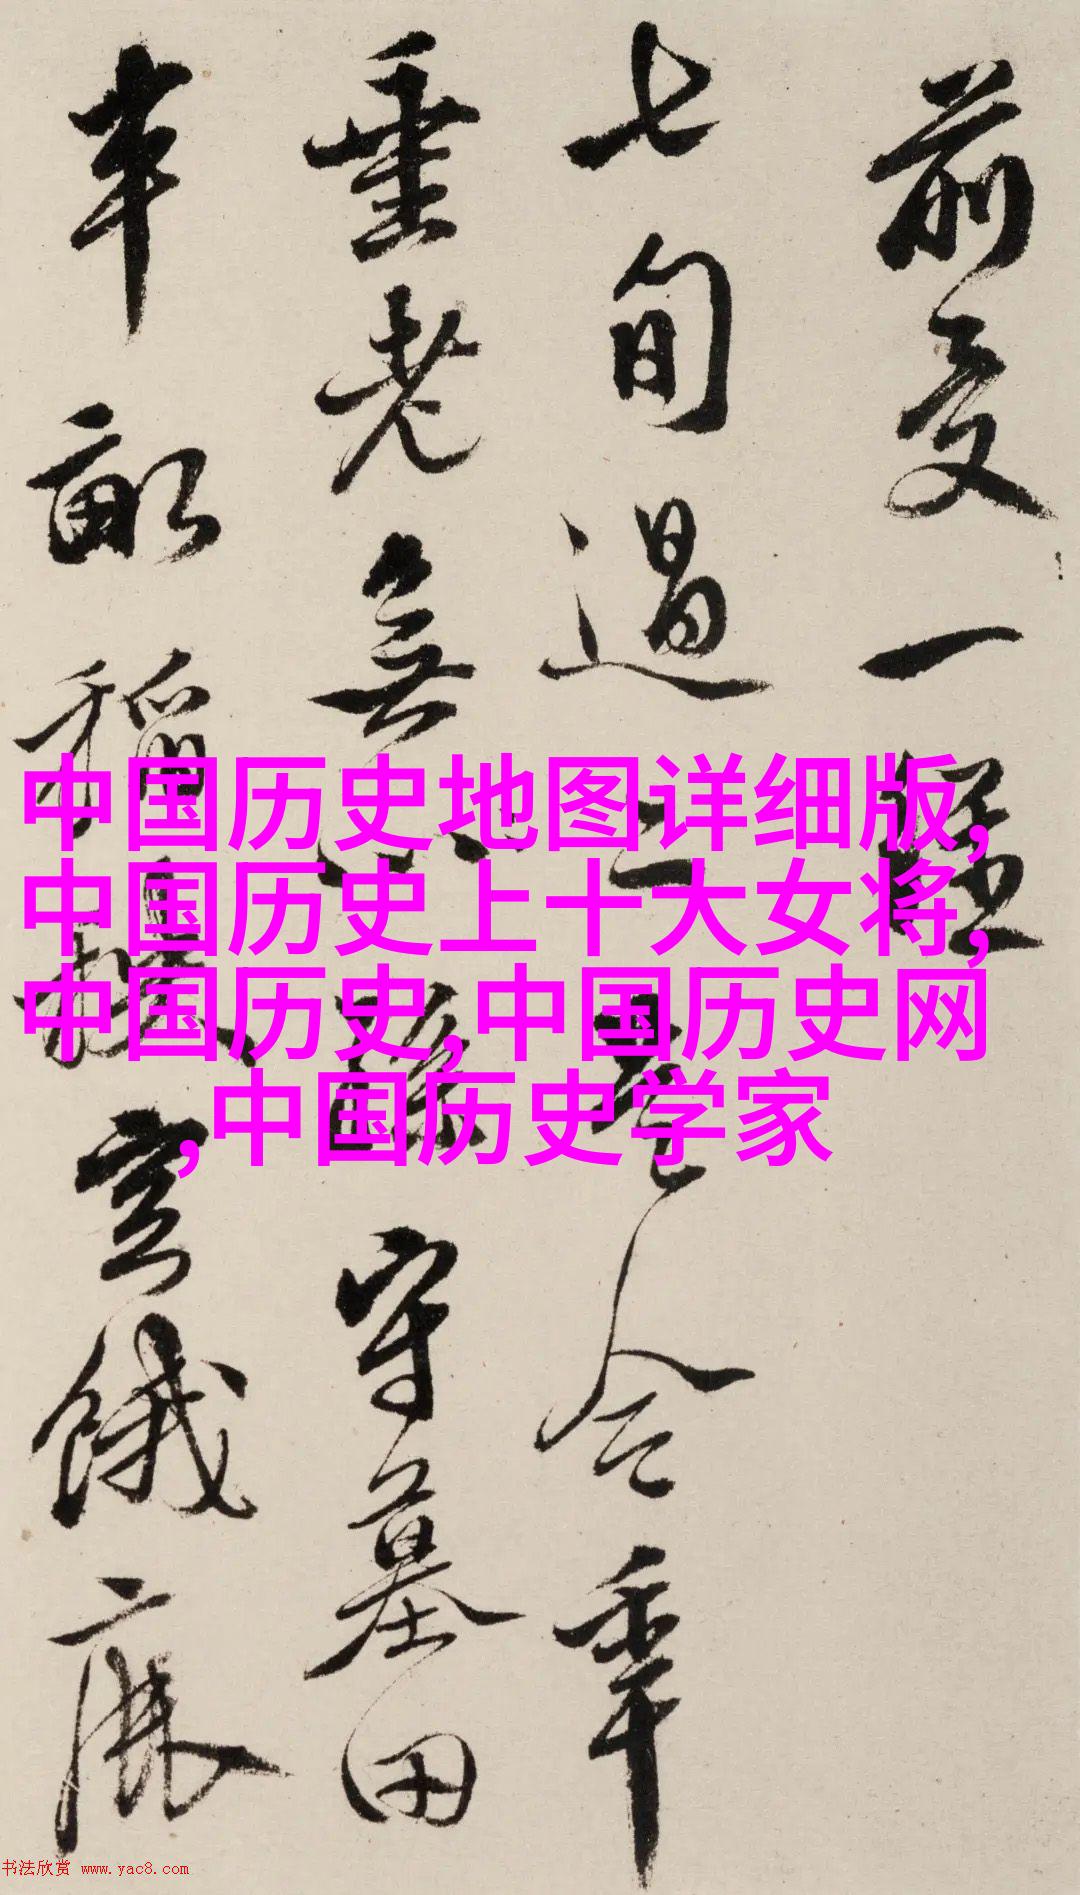 前受一
七旬過二是今年
垂老無守墓田
半畝稻空餓
中国历史地图详细版,
中国历史上十大女将,
中国历史,中国历史网
,中国历史学家
书法欣赏 www.yac8.com